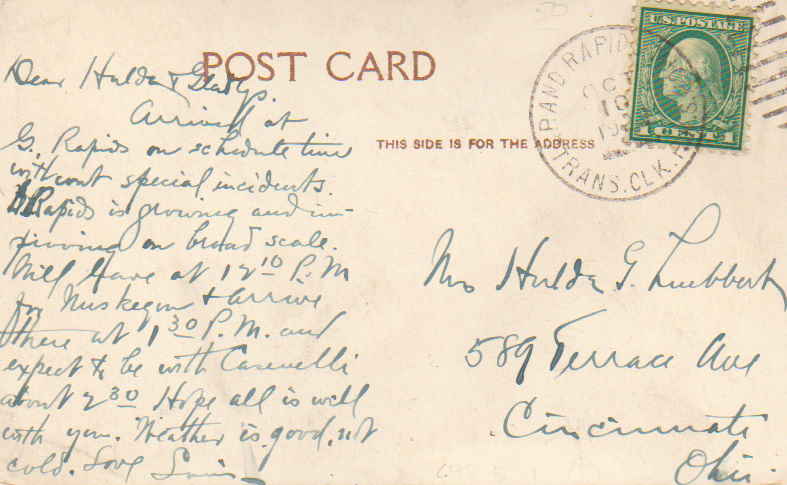 POST CARD
THIS SIDE IS FOR THE ADDRESS
U.S. POSTAGE
1 CENT 1
RAND RAPID
OCT
10
19
TRANS. CLK.
Dear Hulda & Gladys.
Arrived at
G. Rapids on schedule time
without special incidents.
Rapids is growing and im-
proving on broad scale.
Will leave at 12 10 P.M
for Muskegon & arrive
there at 1 30 P.M. and
expect to be with
about 2 30 Hope all is well
with you. Weather is good, not
cold. Love
Mrs Hulda G. Lubbert
589 Terrace Ave
Cincinnati
Ohio.